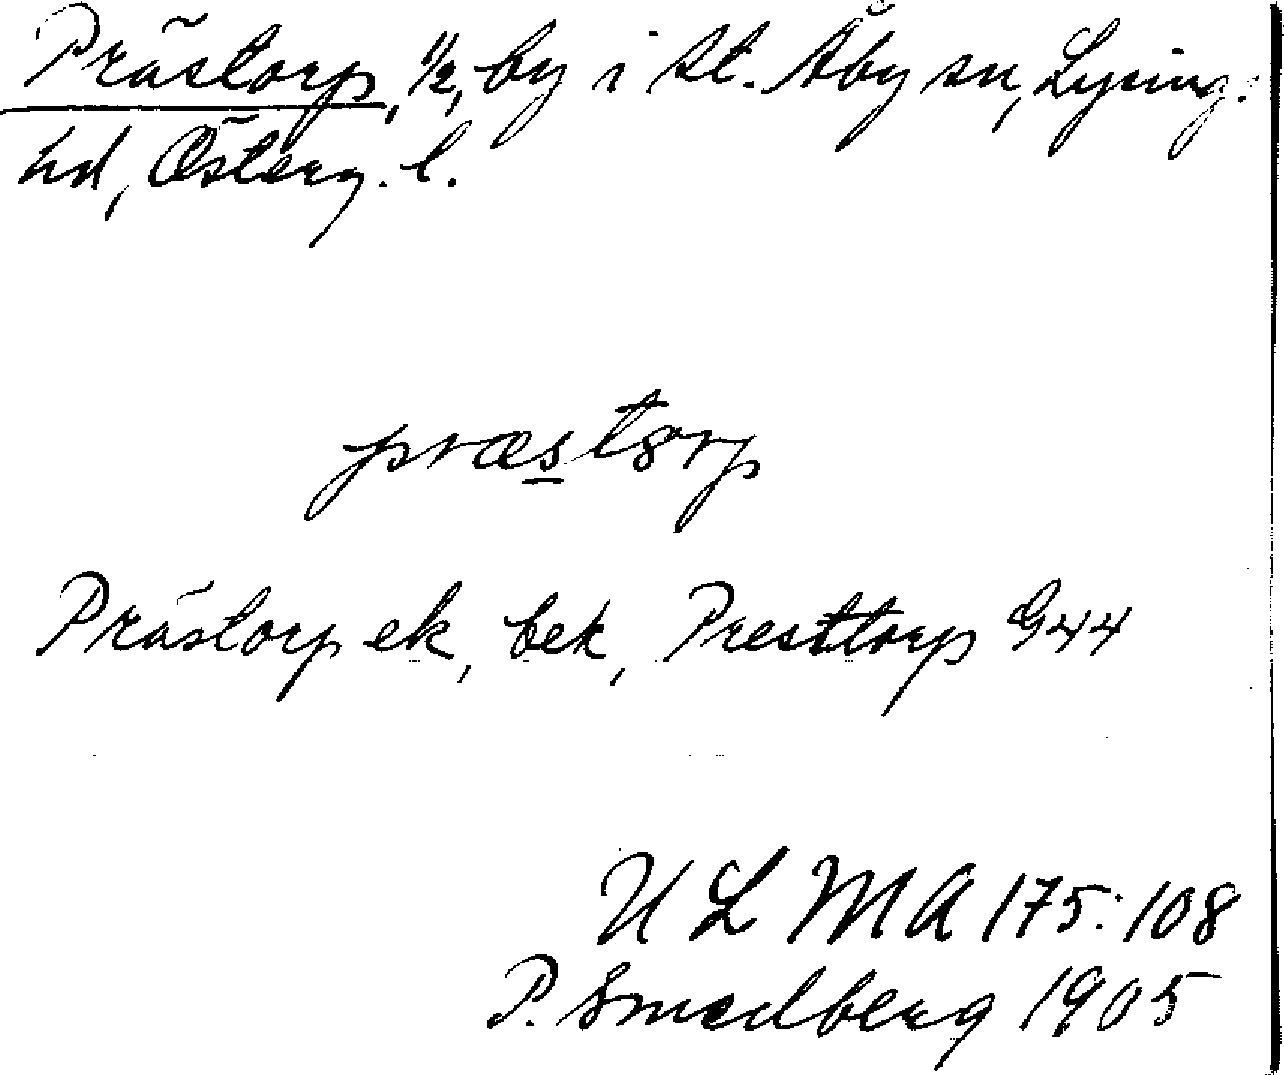 Prästorp, 1/2, by i St. Åby sn, Lysing.
hd, Österg. l.
præstorp
Prästorp ek, bek, Presttorp G44
ULMA 175:108
P. Smedberg 1905